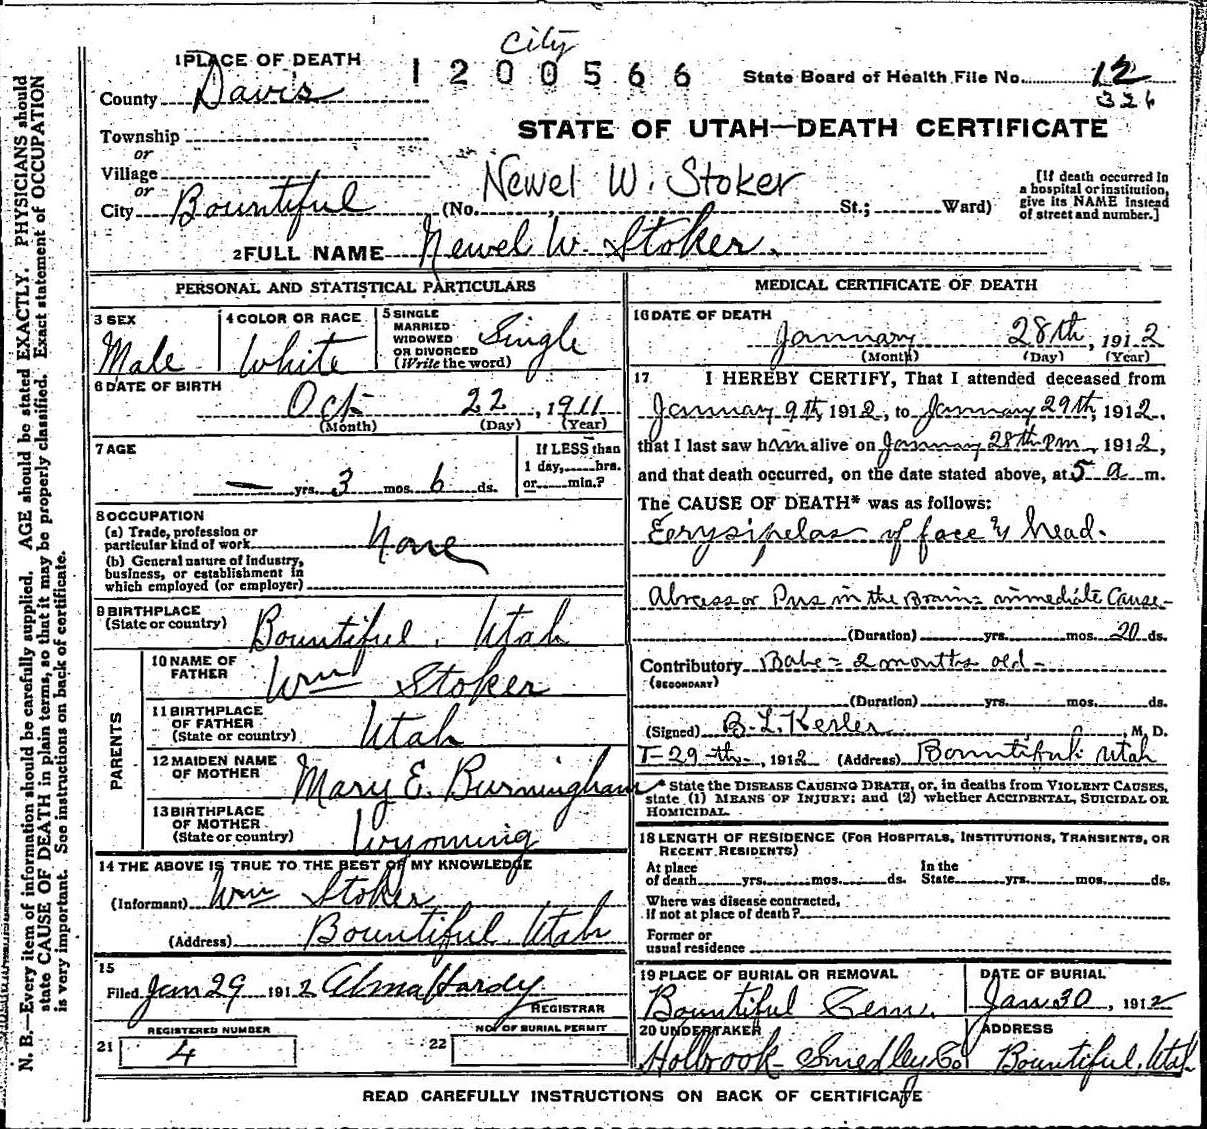 City
1 PLACE OF DEATH
1 2 0 0 5 6 6
State Board of Health File No. 12
326
County Davis
STATE OF UTAH—DEATH CERTIFICATE
Township
or
Village
or
City Bountiful
Newel W. Stoker
(No. , St.; Ward)
[If death occurred in
a hospital or institution,
give its NAME instead
of street and number.]
2 FULL NAME Newel W. Stoker.
PERSONAL AND STATISTICAL PARTICULARS
3 SEX
Male
4 COLOR OR RACE
White
5 SINGLE
MARRIED
WIDOWED
OR DIVORCED
(Write the word)
Single
6 DATE OF BIRTH
Oct 22, 1911
(Month) (Day) (Year)
7 AGE
— yrs. 3 mos. 6 ds.
If LESS than
1 day, hrs.
or min.?
8 OCCUPATION
(a) Trade, profession or
particular kind of work None
(b) General nature of industry,
business, or establishment in
which employed (or employer)
9 BIRTHPLACE
(State or country) Bountiful, Utah
PARENTS
10 NAME OF
FATHER Wm Stoker
11 BIRTHPLACE
OF FATHER
(State or country) Utah
12 MAIDEN NAME
OF MOTHER Mary E. Burningham
13 BIRTHPLACE
OF MOTHER
(State or country) Wyoming
14 THE ABOVE IS TRUE TO THE BEST OF MY KNOWLEDGE
(Informant) Wm Stoker
(Address) Bountiful, Utah
15
Filed Jan 29 1912 Alma Hardy
REGISTRAR
REGISTERED NUMBER
21 4
NO. OF BURIAL PERMIT
22
MEDICAL CERTIFICATE OF DEATH
16 DATE OF DEATH
January 28th, 1912
(Month) (Day) (Year)
17 I HEREBY CERTIFY, That I attended deceased from
January 9th, 1912, to January 29th, 1912,
that I last saw him alive on January 28th Pm, 1912,
and that death occurred, on the date stated above, at 5 a m.
The CAUSE OF DEATH* was as follows:
Eerysipelas of face & head.
Abscess or Pus in the Brain = immediate Cause -
(Duration) yrs. mos. 20 ds.
Contributory Babe = 2 months old -
(SECONDARY)
(Duration) yrs. mos. ds.
(Signed) B. L. Kesler, M. D.
1-29-th-, 1912 (Address) Bountiful Utah
* State the DISEASE CAUSING DEATH, or, in deaths from VIOLENT CAUSES,
state (1) MEANS OF INJURY; and (2) whether ACCIDENTAL, SUICIDAL OR
HOMICIDAL.
18 LENGTH OF RESIDENCE (FOR HOSPITALS, INSTITUTIONS, TRANSIENTS, OR
RECENT RESIDENTS)
At place
of death yrs. mos. ds.
In the
State yrs. mos. ds.
Where was disease contracted,
if not at place of death?
Former or
usual residence
19 PLACE OF BURIAL OR REMOVAL
Bountiful Cem.
DATE OF BURIAL
Jan 30, 1912
20 UNDERTAKER
Holbrook-Smedley Co
ADDRESS
Bountiful, Utah
READ CAREFULLY INSTRUCTIONS ON BACK OF CERTIFICATE
N. B.—Every item of information should be carefully supplied. AGE should be stated EXACTLY. PHYSICIANS should
state CAUSE OF DEATH in plain terms, so that it may be properly classified. Exact statement of OCCUPATION
is very important. See instructions on back of certificate.